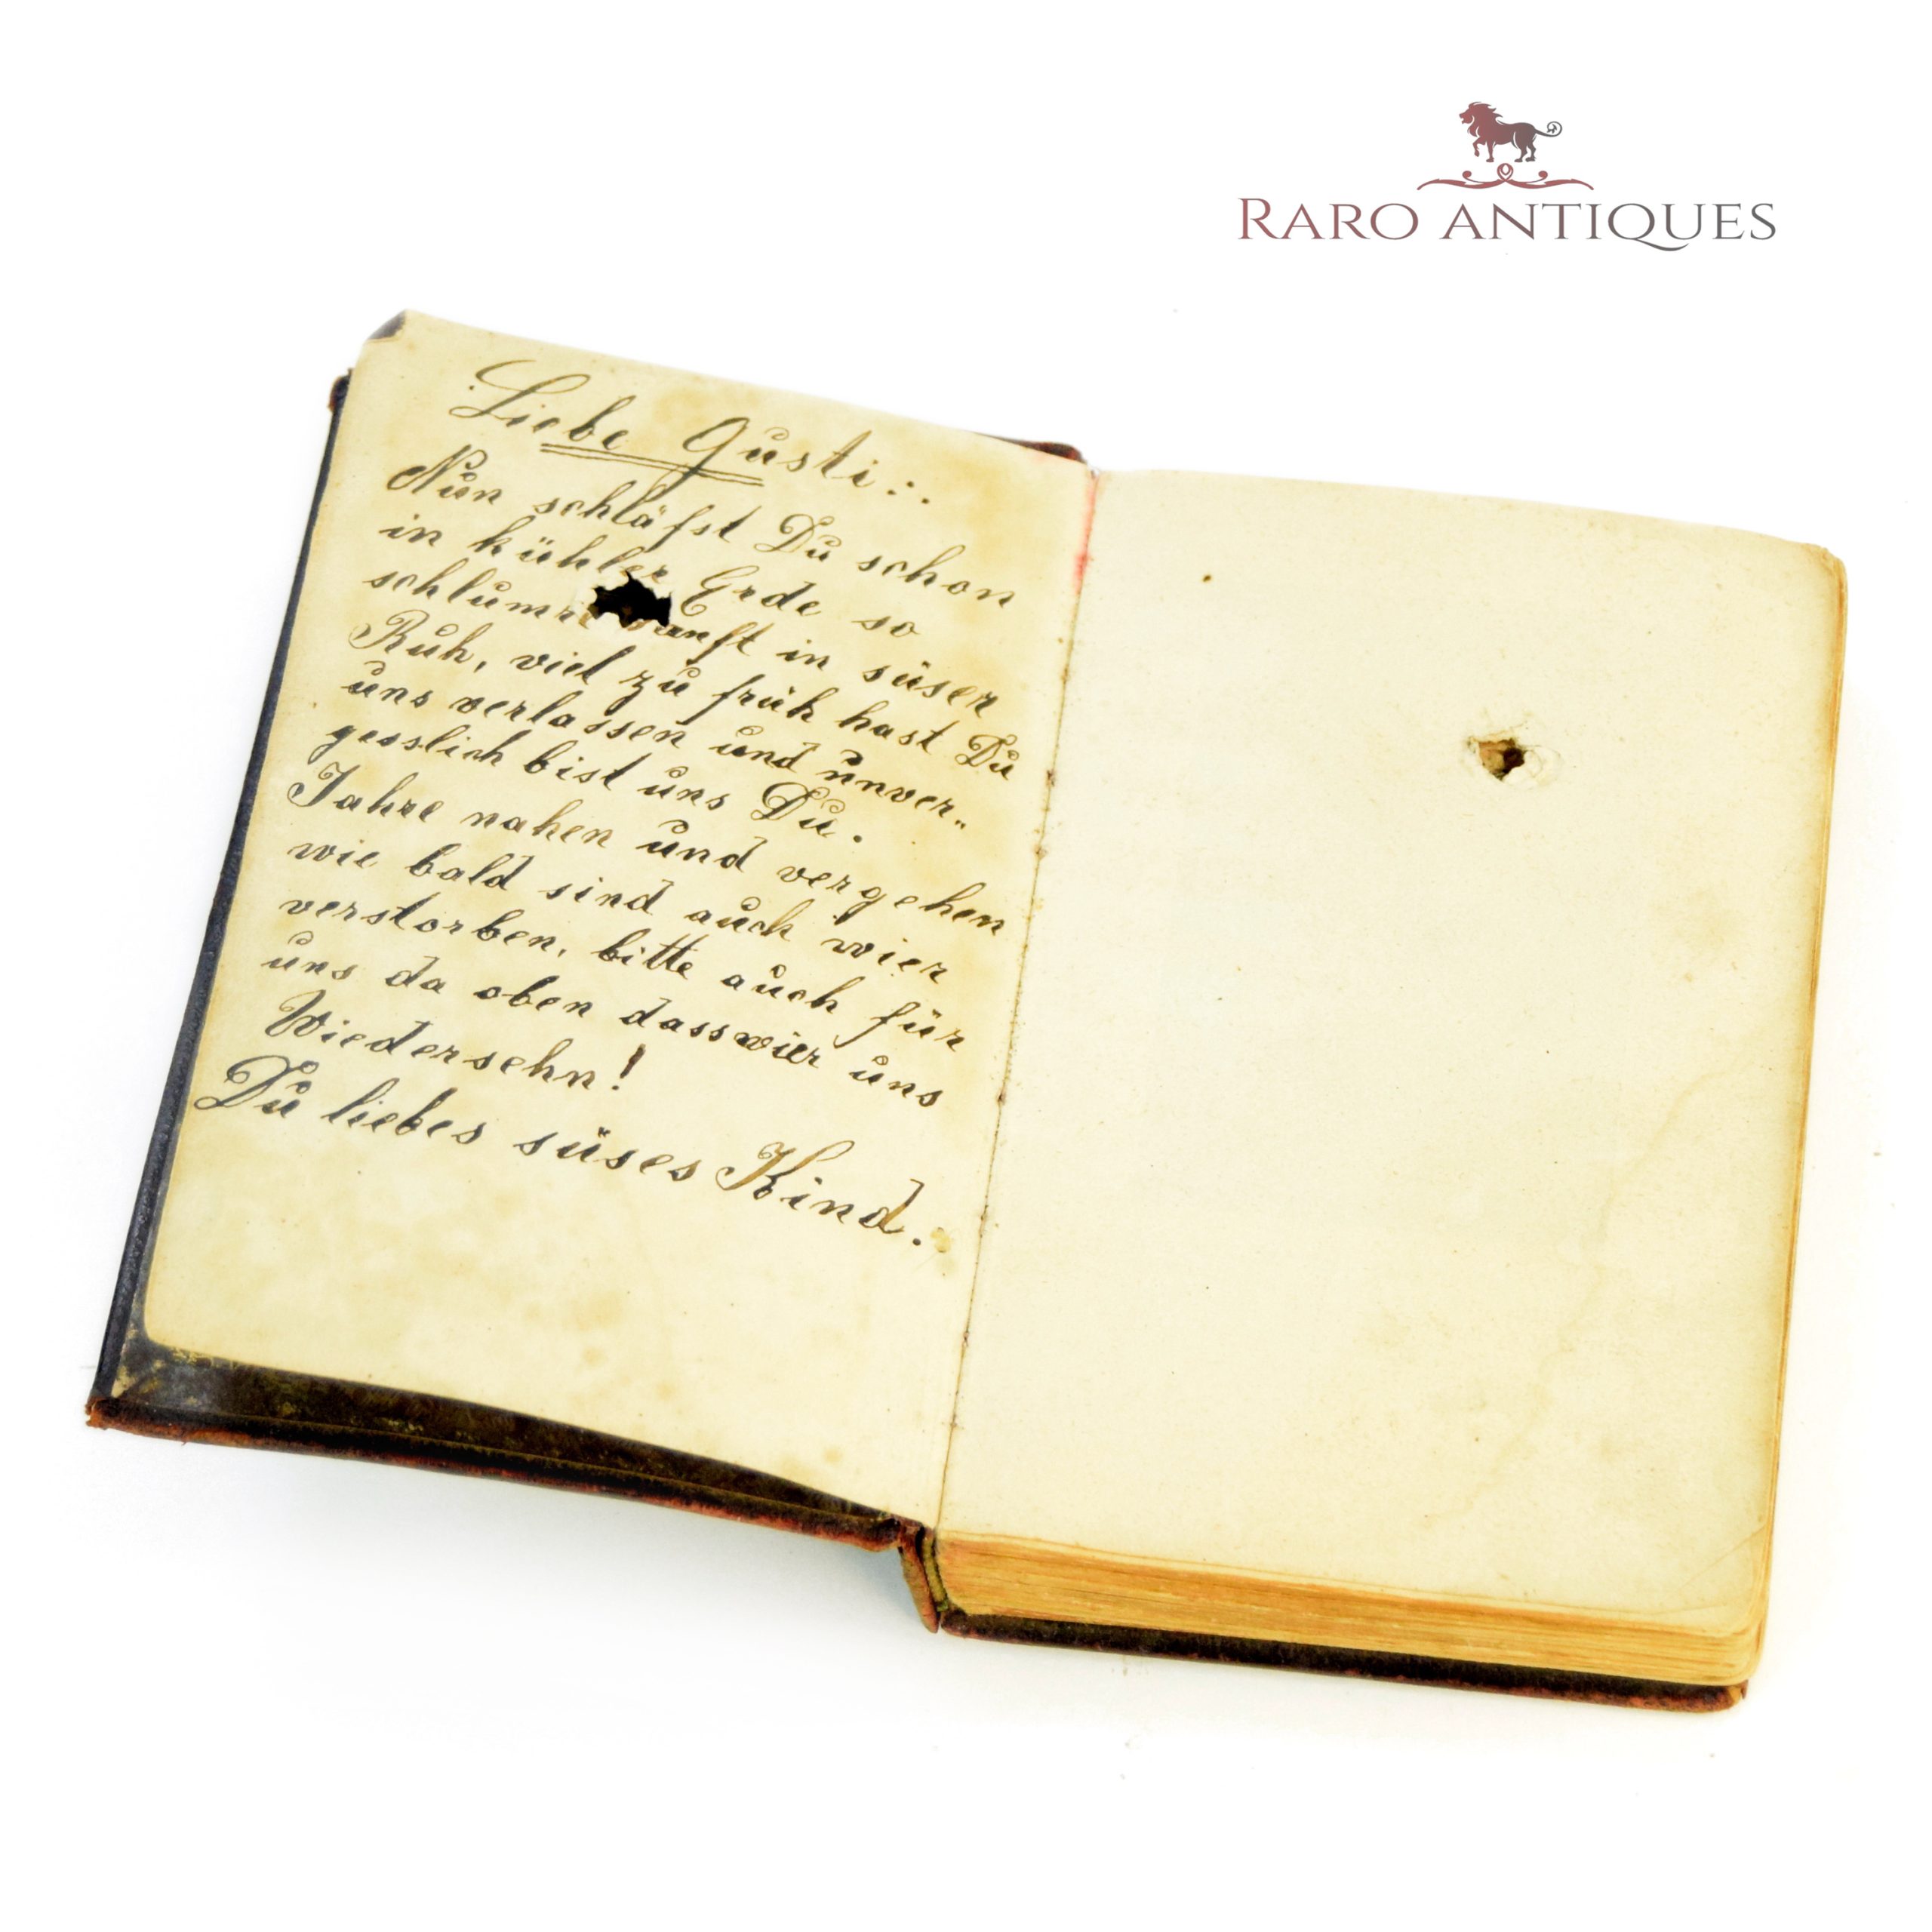 RARO ANTIQUES
Liebe Gusti :.
Nun schläfst Du schon
in kühler Erde so
schlumre sanft in süser
Ruh, viel zu früh hast Du
uns verlassen und unver„
gesslich bist uns Du.
Jahre nahen und vergehen
wie bald sind auch wier
verstorben, bitte auch für
uns da oben dasswier uns
Wiedersehn!
Du liebes süses Kind.